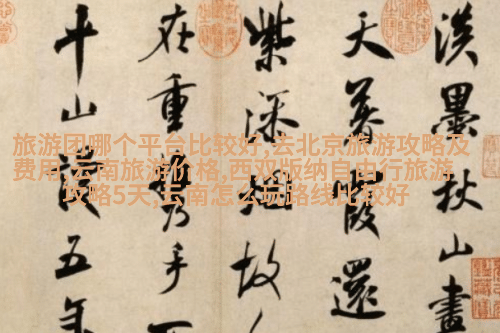 旅游团哪个平台比较好,去北京旅游攻略及
费用,云南旅游价格,西双版纳自由行旅游
攻略5天,云南怎么玩路线比较好
淡墨秋山畫
天暮霞還
紫添烟故
在重攜手不
平山謾五年